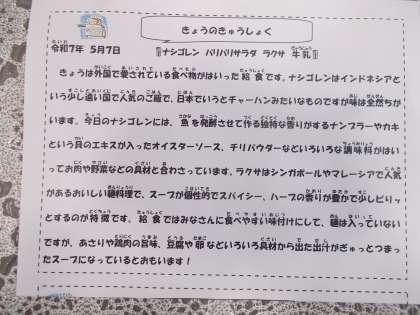 きょうのきゅうしょく
令和7年 5月7日 『ナシゴレン パリパリサラダ ラクサ 牛乳』
きょうは外国で愛されている食べ物がはいった給食です。ナシゴレンはインドネシアと
いう少し遠い国で人気のご飯で、日本でいうとチャーハンみたいなものですが味は全然ちが
います。今日のナシゴレンには、魚を発酵させて作る独特な香りがするナンプラーやカキ
という貝のエキスが入ったオイスターソース、チリパウダーなどいろいろな調味料がはい
ってお肉や野菜などの具材と合わさっています。ラクサはシンガポールやマレーシアで人気
があるおいしい麺料理で、スープが個性的でスパイシー、ハーブの香りが豊かで少しピリッ
とするのが特徴です。給食ではみなさんに食べやすい味付けにして、麺は入っていない
ですが、あさりや鶏肉の旨味、豆腐や卵などいろいろな具材から出た出汁がぎゅっとつまっ
たスープになっているとおもいます！